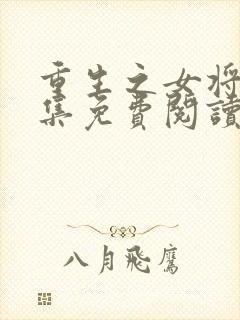 重生之女将
集免費閱讀
八月飛鷹